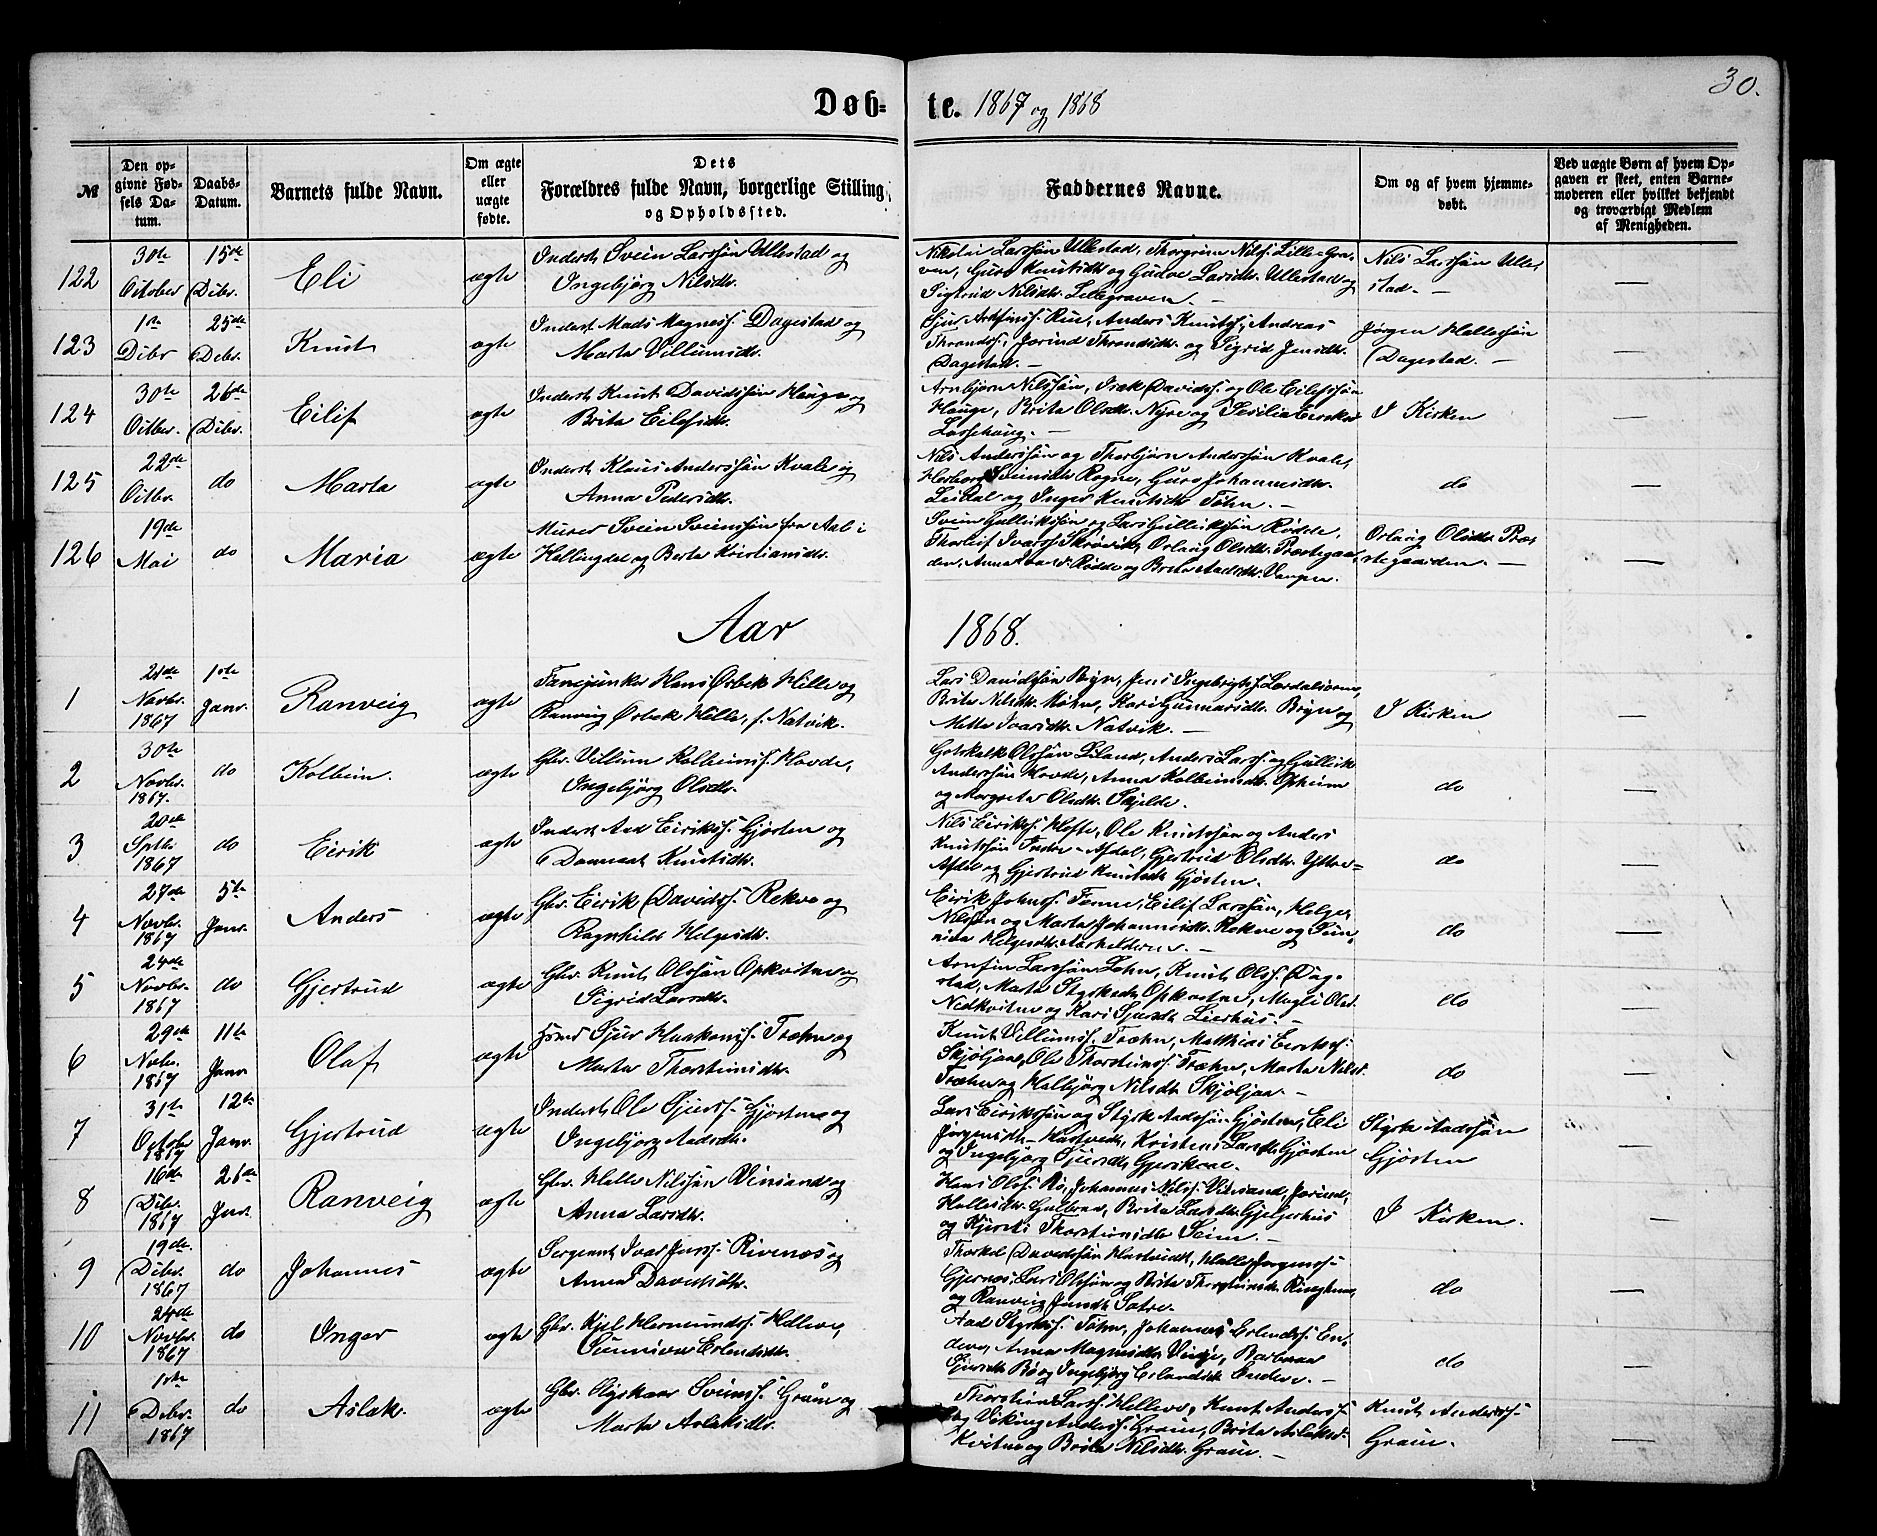 30.
Døb-te. 1867 og 1868
№
Den opgivne Fødsels Datum.
Daabs-Datum.
Barnets fulde Navn.
Om ægte eller uægte fødte.
Dets Forældres fulde Navn, borgerlige Stilling og Opholdssted.
Faddernes Navne.
Om og af hvem hjemmedøbt.
Ved uægte Børn af hvem Opgaven er skeet, enten Barnemoderen eller hvilket bekjendt og troværdigt Medlem af Menigheden.
122 30te October 15de Dcbr. Eli ægte
Inderst Svein Larssøn Ullestad og
Ingebjørg Nilsdtr.
Nikolai Larssøn Ullestad, Thorgrim Nilss. Lille-Gra-
ven, Guro Knutsdtr og Gudve Larsdtr. Ullestad og
Sigtrud Nilsdtr. Lillegraven. —
Nils Larssøn Ulle-
stad. —
123 1te Dcbr 25de Decbr. Knut ægte
Inderst Mads Magness. Dagestad og
Marta Villumsdtr.
Sjur Arnfinss. Rue, Anders Knutss., Andreas
Thronds., Jorind Throndsdtr. og Sigrid Jensdtr.
Dagestad. —
Jørgen Hellessøn
Dagestad. —
124 30te Octbr. 26de Dcbr. Eilif ægte
Inderst Knut Davidssøn Hauge og
Brita Eilefsdtr.
Arnbjørn Nilssøn, Isak Davidss. og Ole Eilefssøn
Hauge, Brita Olsdtr. Nyre og Sesilia Eiriksd.
Lassehaug. —
I Kirken
125 22de Octbr. do Marta ægte
Inderst Klaus Anderssøn Kvale og
Anna Pedersdtr.
Nils Anderssøn og Thorbjørn Anderssøn Kvale,
Herborg Sveinsdtr Rogne, Guro Johannesdtr.
Leidal og Inger Knutsdtr Tøhn. —
do
126 19de Mai do Maria ægte
Murer Svein Sveinssøn fra Aal i
Hallingdal og Berta Kristiansdtr.
Svein Gulleikssøn og Lars Gulleikssøn Rødde,
Thorleif Ivarss. Skrøvik, Orlaug Olsdtr. Præstegaar-
den, Anna Rødde og Brita Aadsdtr. Vangen.
Orlaug Olsdtr. Præ-
stegaarden. —
Aar 1868.
1 21de Novbr. 1867 1ste Janr. Ranveig ægte
Fanejunker Hans Ørbek Hille og
Ranveig Ørbek Hille, f. Natvik.
Lars Davidssøn Bryn, Jens Ingebrigts. Lærdalsøren,
Brita Nilsdtr. Møhn, Kari Gunnarsdtr. Bryn og
Metta Ivarsdtr. Natvik. —
I Kirken
2 30te Novbr. 1867. do Kolbein. ægte
Gbr. Villum Kolbeinss. Hovde,
Ingebjørg Olsdtr.
Gotskalk Olssøn Liland, Anders Larss. og Gulleik
Anderssøn Hovde, Anna Kolbeinsdtr. Opheim
og Margreta Olsdtr. Skjelde.
do
3 20de Sptbr 1867 do Eirik ægte
Inderst Aad Eirikss. Gjøsten og
Dannaat Knutsdtr.
Nils Eirikss. Klofte, Ole Knutssøn og Anders
Knutssøn Indre-Afdal, Gjertrud Olsdtr. Yttre-
Afdal og Gjertrud Knutsdtr Gjøsten.
do
4 27de Novbr. 1867 5te Janr. Anders ægte
Gbr. Eirik Davidss. Rekve og
Ragnhild Helgesdtr.
Eirik Johnss. Fenne, Eilif Larssøn, Helge
Nilssøn og Marta Johannesdtr. Rekve og Sun-
niva Helgesdtr. —
do
5 24de Novbr. 1867 do Gjertrud ægte
Gbr. Knut Olssøn Opkvitne og
Sigrid Larsdtr.
Arnfin Larssøn Lohn, Knut Olss. Dag-
stad, Marta Styrksdtr Opkvitne, Magli Olsd.
Nedkvitne og Kari Sjursdtr Lierhus. —
do
6 29de Novbr. 1867 11te Janr Olaf ægte
Sjur Haakonss. Træhn og
Marta Thorsteinsdtr.
Knut Villumss. Træhn, Matthias Eirikss.
Skjøljaa, Ole Thorsteinss. Træhn, Marta Nilsd.
Træhn og Halbjørg Nilsdtr Skjøljaa. —
do
7 31te October 1867 12te Janr. Gjertrud ægte
Inderst Ole Sjurss. Gjøsten og
Ingebjørg Aadsdtr.
Lars Eirikssøn og Styrk Aadssøn Gjøsten, Eli
Jørgensdtr. Hastveit, Kristense Larsdtr Gjøsten
og Ingebjørg Sjursdtr Gjerskvæl.
Styrk Aadssøn
Gjøsten
8 16de Dcbr. 1867 26de Janr. Ranveig ægte
Gbr. Helle Nilssøn Vinsand og
Anna Larsdtr.
Hans Olss. Bø, Johannes Nilss. Vinsand, Jorind
Hellesdtr. Gulbraa, Brita Larsdtr. Gjelgerhus
og Kjersti Thorsteinsdtr Seim. —
I Kirken.
9 19de. Dcbr. 1867 do Johannes ægte
Sergeant Ivar Jenss. Rivenæs og
Anna Davidsdtr.
Thorkel Davidssøn Hastveit, Helle Jørgenss.
Gjernes, Lars Olssøn og Brita Thorsteinsdtr Ringheim
og Ranveig Jensdtr Sætre.
do
10 24de Novbr. 1867 do Inger ægte
Gbr. Kjel Hermunds. Helleve,
Sunniva Erlendsdtr.
Aad Styrkss. Tøhn, Johannes Erlendss. En-
deve, Anna Magnesdtr. Vinje, Barbraa
Sjursdtr Bø og Ingebjørg Erlendsdtr Endeve. —
do
11 1ste Decbr. 1867 do Aslak. ægte
Gbr. Olgskaar Sveinss. Graue og
Marta Aslaksdtr.
Thorstein Larss. Helleve, Knut Anderss.
og Viking Anderss. Graue, Brita Aslaksd.
Kvitne og Brita Nilsdtr. Graue. —
Knut Anderss.
Graue.